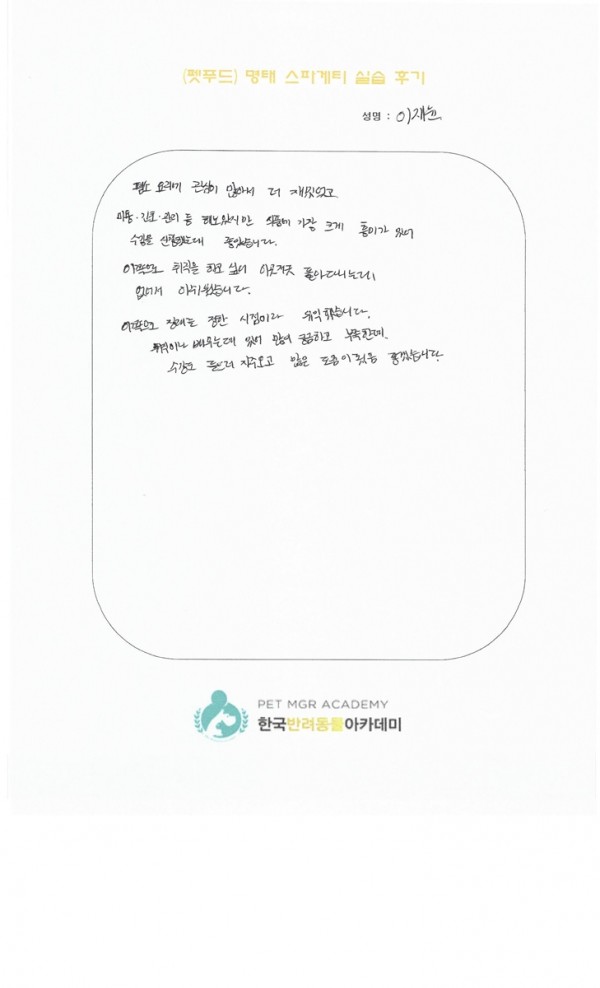 (펫푸드) 명태 스파게티 실습 후기
성명 : 이재윤
평소 요리에 관심이 많아서 더 재밌었고
미용·간호·관리 등 배도 가장 크게 흥미가 있어
수강을 신청했는데 좋았습니다.
이쪽으로 취직을 하고 싶어 이곳저곳 돌아다니는데
없어서 아쉬웠습니다.
이쪽으로 장래를 정한 시점이라 유익했습니다.
취직이나 배우는데 있어 많이 궁금하고 부족한데,
수강도 많은 도움이 좋겠습니다
PET MGR ACADEMY
한국반려동물아카데미